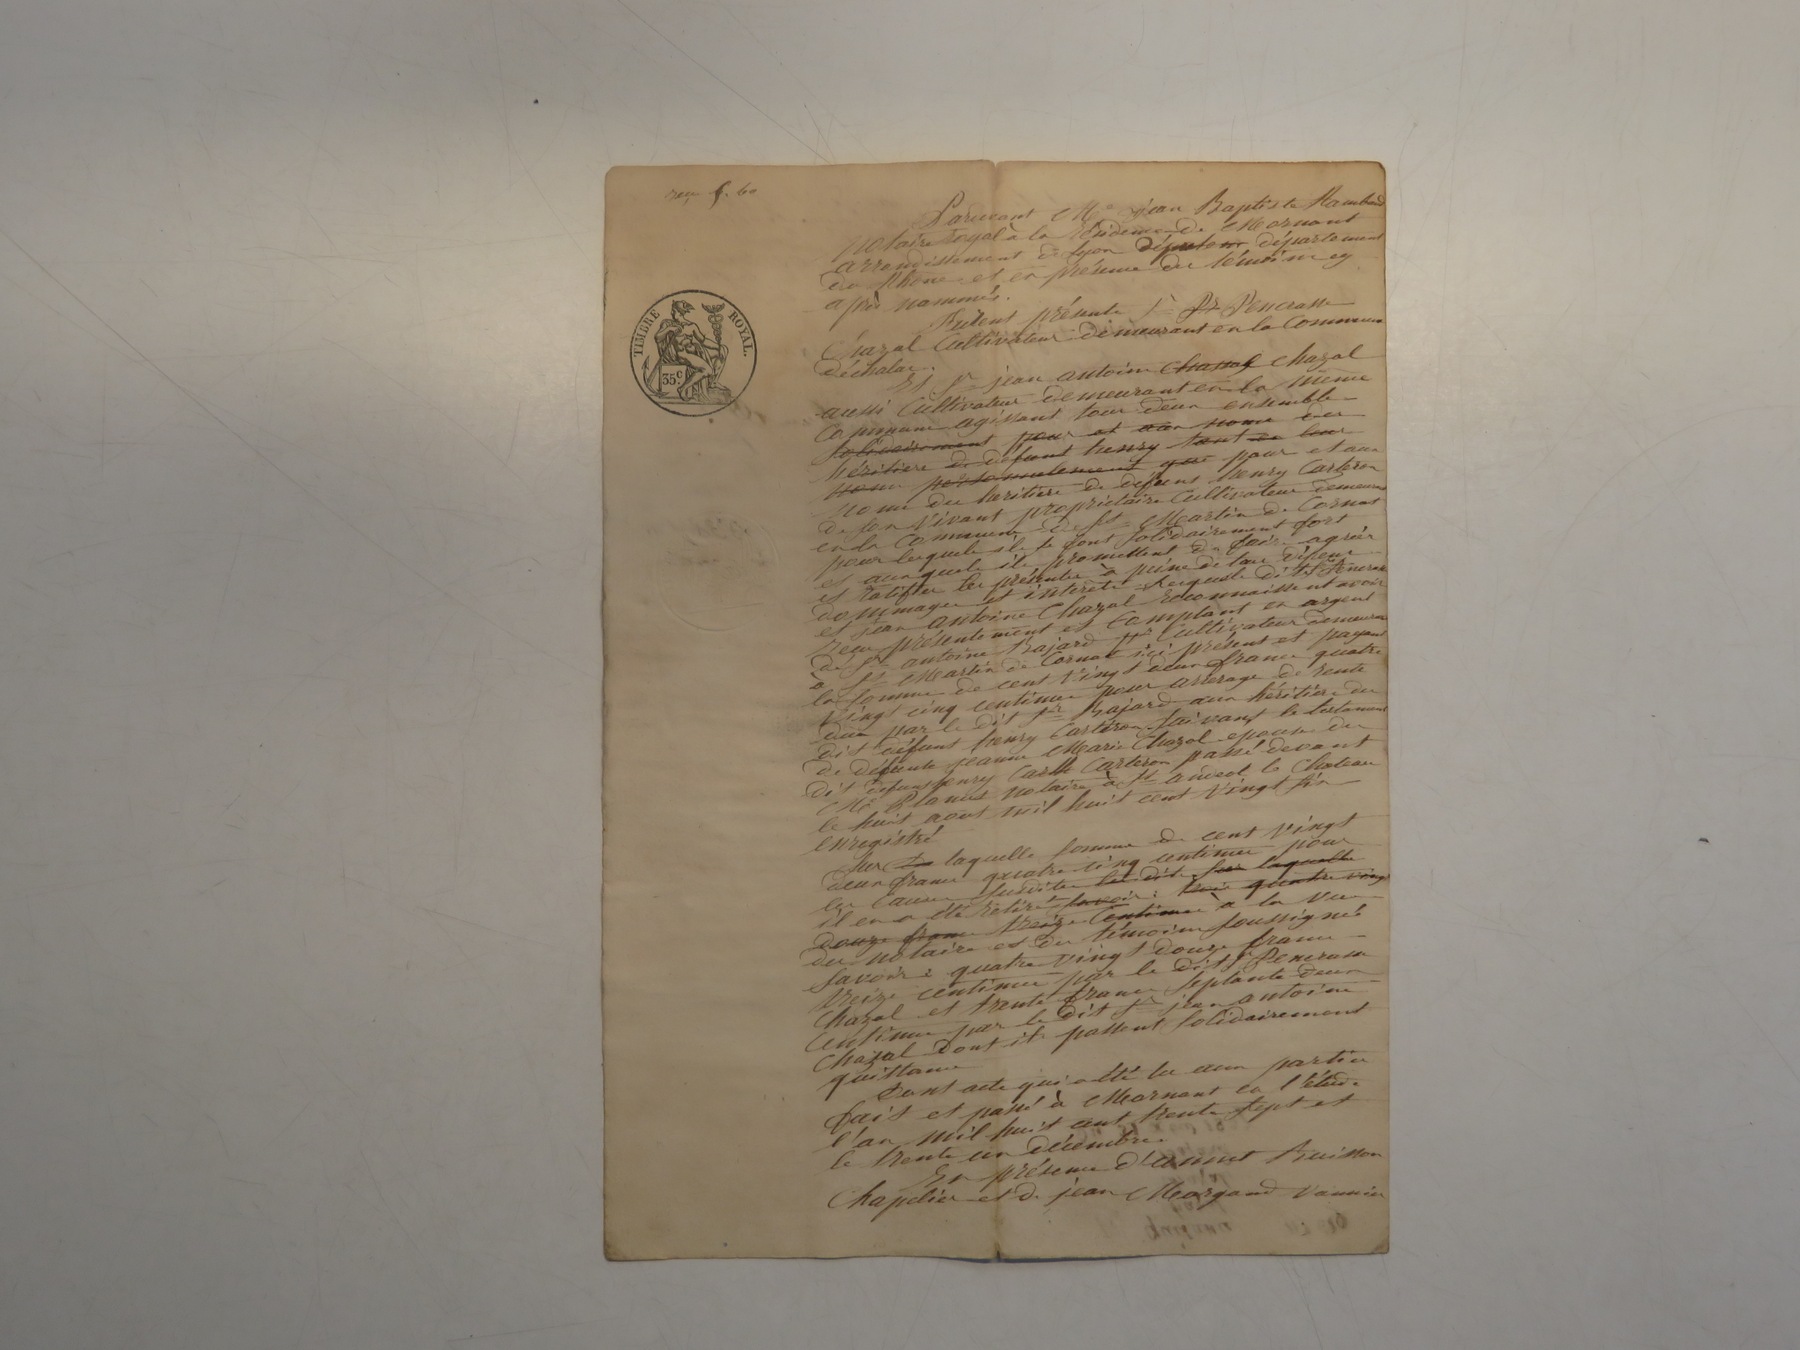 reçu f. 60
TIMBRE ROYAL.
35c
Pardevant Me jean Baptiste Rambaud
notaire royal à la résidence de Mornant
arrondissement de Lyon département
du Rhône et en présence des témoins cy
après nommés.
Furent présents Sr Pr Pencrasse
Chazal Cultivateur demeurant en la Commune
déchalas.
Et Sr jean antoine Chassal Chazal
aussi Cultivateur demeurant en la même
Commune agissant tous deux ensemble
solidairement pour et au nom des
héritiers de défunt henry tant en leur
nom personnelement que pour et aux
noms des héritiers de défunt henry Carteron
de son vivant propriétaire Cultivateur demeurant
en la Commune de St Martin de Cornas
pour lesquels ils se font solidairement fort
et auxquels ils promettent de faire agréer
et ratifier les présentes à peine de tous dépens
dommages et intérêts lesquels dits Sr Pencrasse
et jean antoine Chazal reconnaissent avoir
reçu présentement et Comptant en argent
de Sr antoine Bajard Cultivateur demeurant
à St Martin de Cornas ici présent et payant
la somme de cent vingt deux francs quatre
vingt cinq centimes pour arrerage de rente
due par le dit Sr Bajard aux héritiers du
dit défunt henry Carteron suivant le testament
de défunte jeanne Marie Chazal epouse du
dit défunt henry Carteron passé devant
Me Planus notaire à St andeol le Chateau
le huit aout mil huit cent vingt six
enregistré
Sur laquelle somme de cent vingt
deux francs quatre vingt cinq centimes pour
les causes susdites les dits sur laquelle
il en a été retiré savoir: quatre vingt
douze francs treize centimes à la vue
du notaire et des témoins soussignés
Savoir: quatre vingt douze francs
treize centimes par le dit Sr Pencrasse
Chazal et trente francs septante deux
centimes par le dit Sr jean antoine
Chazal dont ils passent solidairement
quittance
Dont acte qui a été lu aux parties
fait et passé à Mornant en l'étude
l'an mil huit cent trente sept et
le trente un décembre.
En présence d'annet Buisson
Chapelier et de jean Morgand vannier